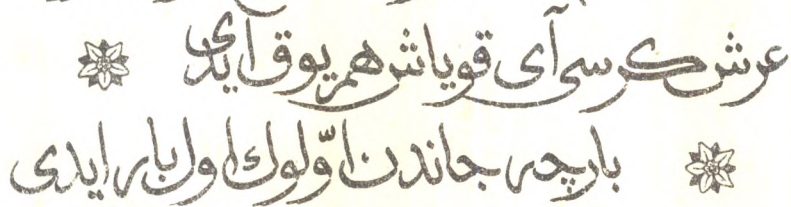 عرش كرسی آی قویاش هم یوق ایدی
بارچه جاندن اوّلوك اول بار ایدی